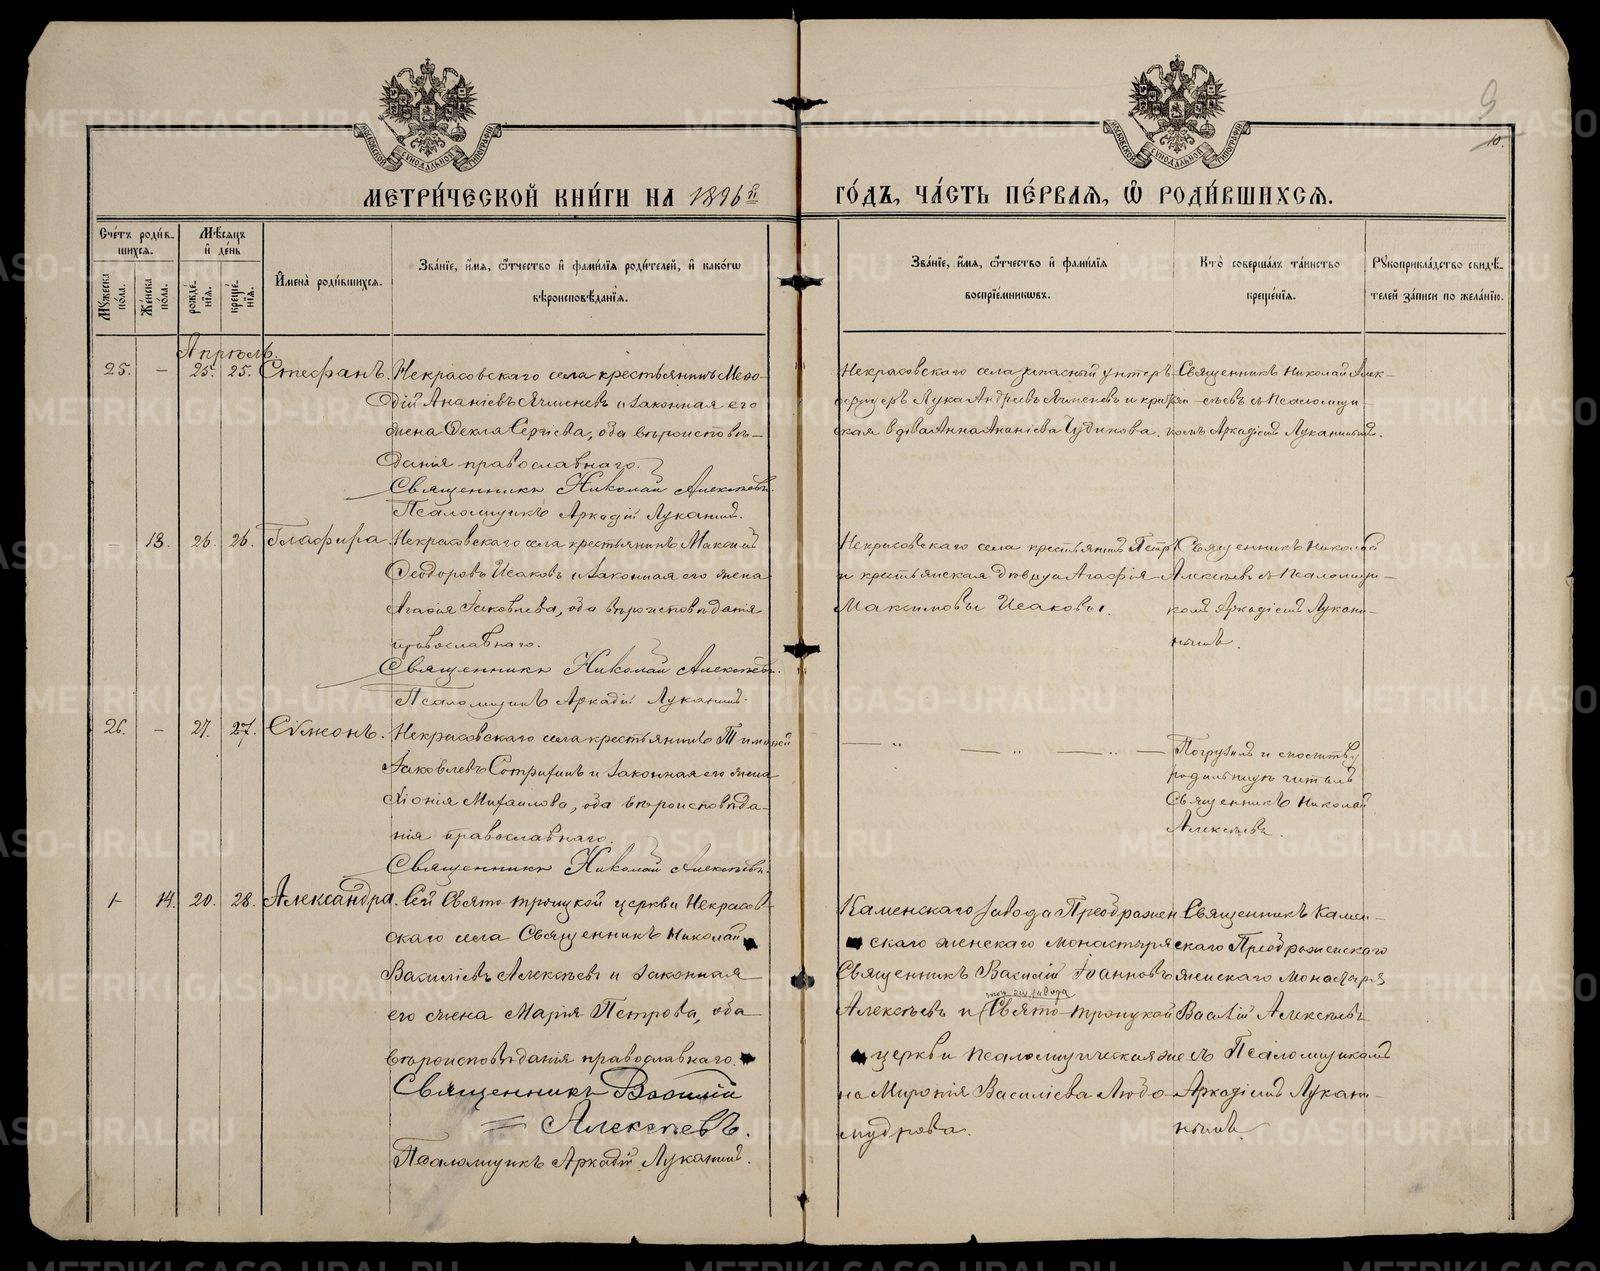 МЕТРИ́ЧЕСКОЙ КНИ́ГИ НА 1896й
ГО́ДЪ, ЧА́СТЬ ПЕ́РВАЯ, Ѡ҆ РОДИ́ВШИХСЯ.
МОСКОВСКОЙ СѴНОДАЛЬНОЙ ТИПОГРАФІИ
МОСКОВСКОЙ СѴНОДАЛЬНОЙ ТИПОГРАФІИ
9
10.
Сче́тъ роди́в-
шихся.
Мѣ́сяцъ
и҆ де́нь
Мꙋ́жеска по́ла.
Же́нска по́ла.
рожде́-нїя.
креще́-нїя.
И҆мена̀ роди́вшихся.
Зва́нїе, и҆́мя, ѻ҆́тчество и҆ фами́лїя роди́телей, и҆ како́гѡ
вѣроисповѣ́данїя.
Зва́нїе, и҆́мя, ѻ҆́тчество и҆ фами́лїя
воспрїе́мникѡвъ.
Кто̀ соверша́лъ та́инство
креще́нїя.
Рꙋкоприкла́дство свидѣ́-
телей за́писи по жела́нїю.
Апрѣль.
25. — 25. 25. Стефанъ. Некрасовскаго села крестьянинъ Меѳо-
дій Ананіевъ Ячменевъ и законная его
жена Ѳекла Сергіева, оба вѣроисповѣ-
данія православнаго.
Священникъ Николай Алексѣевъ.
Псаломщикъ Аркадій Луканинъ.
Некрасовскаго села запасный унтеръ-
офицеръ Лука Андреевъ Ячменевъ и крестьян-
ская вдова Анна Ананіева Чудинова.
Священникъ Николай Алек-
сѣевъ съ Псаломщи-
комъ Аркадіемъ Луканинымъ.
— 13. 26. 26. Глафира. Некрасовскаго села крестьянинъ Максимъ
Ѳеодоровъ Исаковъ и законная его жена
Агафія Іаковлева, оба вѣроисповѣданія
православнаго.
Священникъ Николай Алексѣевъ.
Псаломщикъ Аркадій Луканинъ.
Некрасовскаго села крестьянинъ Петръ
и крестьянская дѣвица Агафія
Максимовы Исаковы.
Священникъ Николай
Алексѣевъ съ Псаломщи-
комъ Аркадіемъ Лукани-
нымъ.
26. — 27. 27. Сѵмеонъ. Некрасовскаго села крестьянинъ Тимоѳей
Іаковлевъ и законная его жена
Хіонія Михаилова, оба вѣроисповѣда-
нія православнаго.
Священникъ Николай Алексѣевъ.
Погрузилъ и молитву
родильную читалъ
Священникъ Николай
Алексѣевъ.
— 14. 20. 28. Александра. Сей Свято-Троицкой церкви Некрасов-
скаго села Священникъ Николай
Василіевъ Алексѣевъ и законная
его жена Марія Петрова, оба
вѣроисповѣданія православнаго.
Священникъ Василій
Алексѣевъ.
Псаломщикъ Аркадій Луканинъ.
Каменскаго завода Преображен-
скаго женскаго монастыря
Священникъ Василій Іоанновъ
Алексѣевъ и того же завода Свято-Троицкой
церкви псаломщическая же-
на Миронія Василіева Любо-
мудрова.
Священникъ Камен-
скаго Преображенскаго
женскаго монастыря
Василій Алексѣевъ
съ Псаломщикомъ
Аркадіемъ Лукани-
нымъ.
METRIKI.GASO-URAL.RU